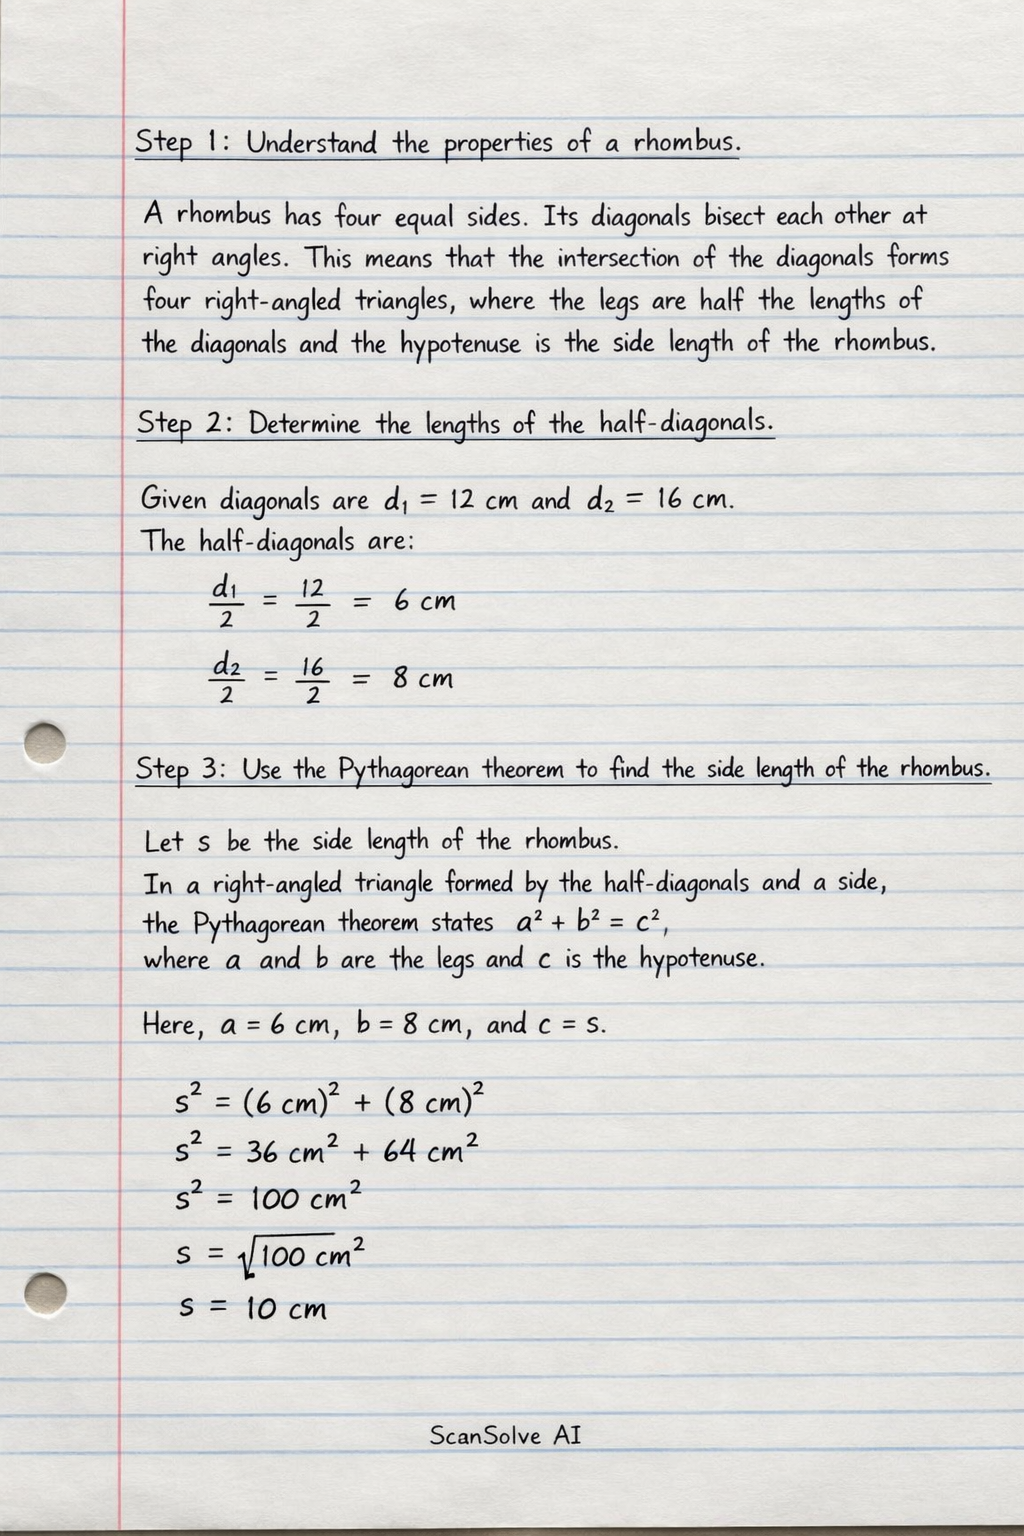 Step 1: Understand the properties of a rhombus.
A rhombus has four equal sides. Its diagonals bisect each other at
right angles. This means that the intersection of the diagonals forms
four right-angled triangles, where the legs are half the lengths of
the diagonals and the hypotenuse is the side length of the rhombus.
Step 2: Determine the lengths of the half-diagonals.
Given diagonals are d₁ = 12 cm and d₂ = 16 cm.
The half-diagonals are:
d₁/2 = 12/2 = 6 cm
d₂/2 = 16/2 = 8 cm
Step 3: Use the Pythagorean theorem to find the side length of the rhombus.
Let s be the side length of the rhombus.
In a right-angled triangle formed by the half-diagonals and a side,
the Pythagorean theorem states a² + b² = c²,
where a and b are the legs and c is the hypotenuse.
Here, a = 6 cm, b = 8 cm, and c = s.
s² = (6 cm)² + (8 cm)²
s² = 36 cm² + 64 cm²
s² = 100 cm²
s = √100 cm²
s = 10 cm
ScanSolve AI